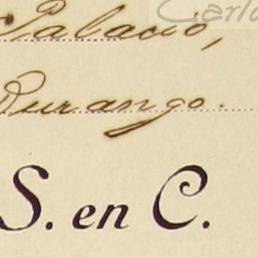 Carlo
Palacio,
Durango.
S. en C.